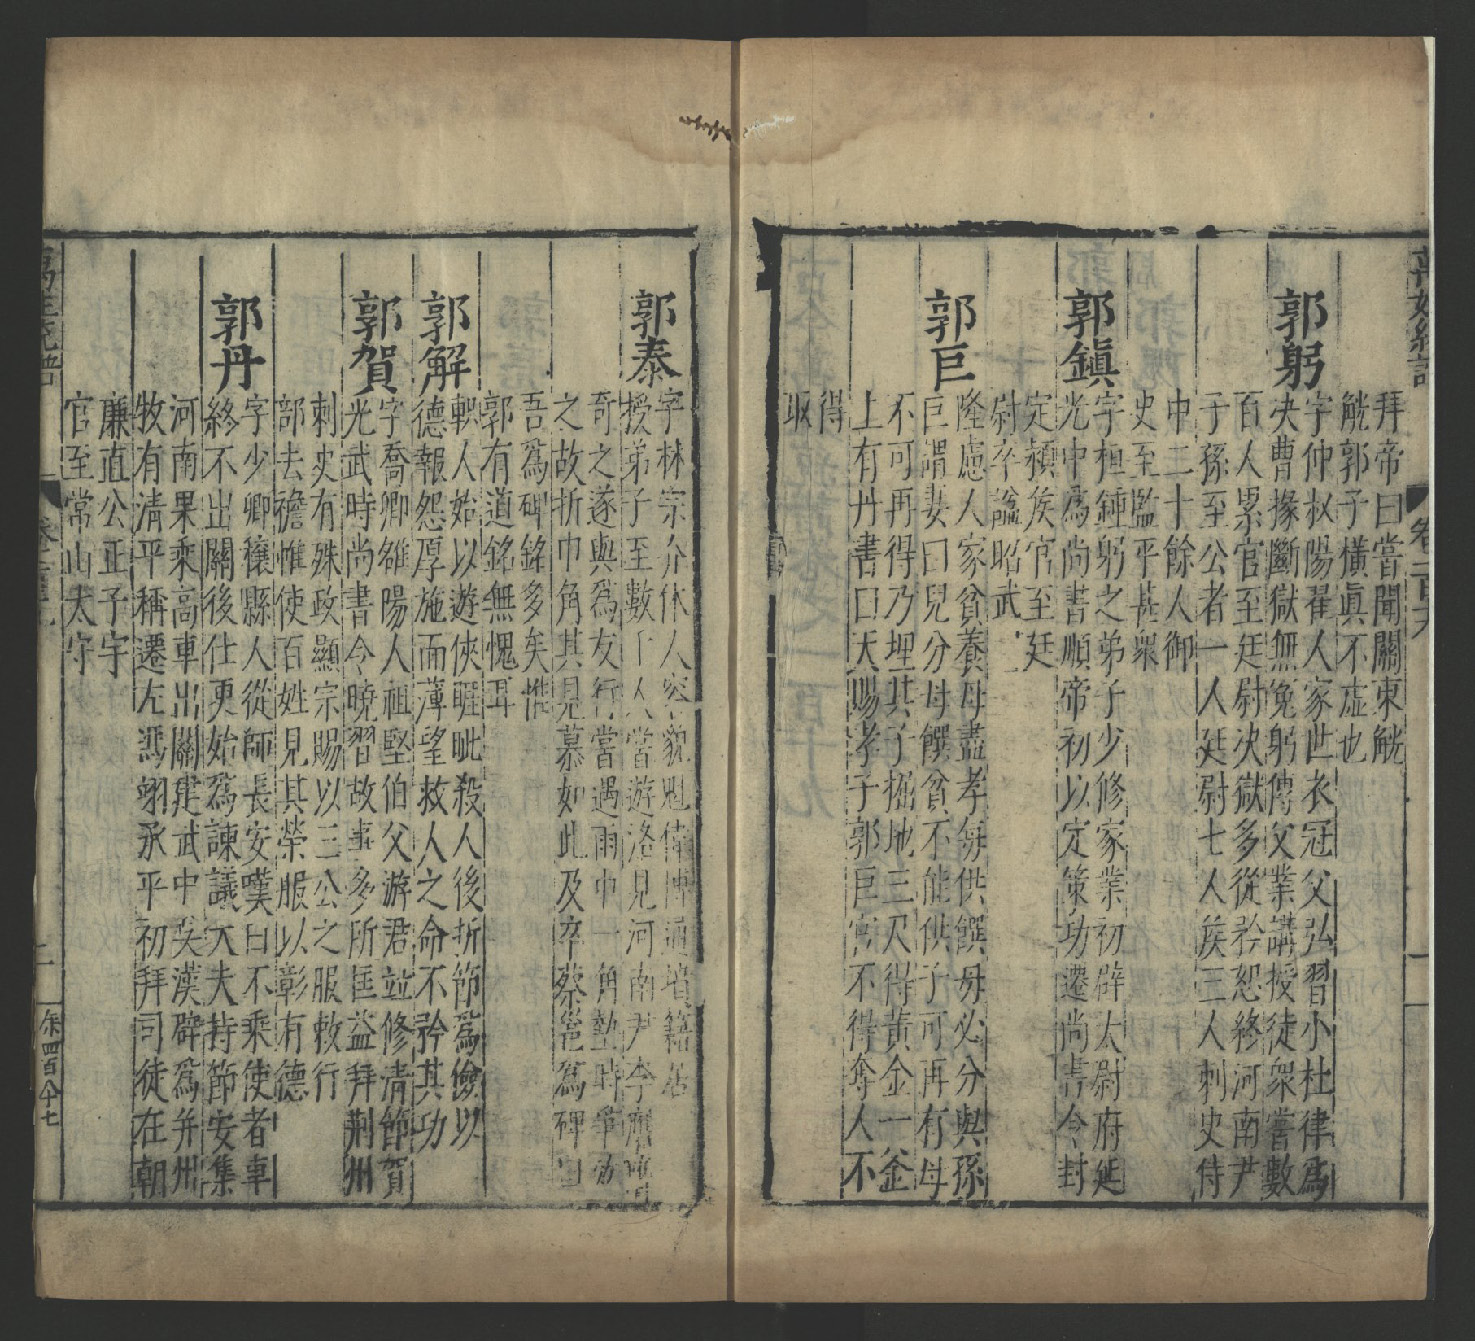 拜帝曰嘗聞關東觥
觥郭子橫眞不虛也
郭躬
字仲叔陽翟人家世衣冠父弘習小杜律爲
決曹掾斷獄無冤躬傳父業講授徒衆嘗數
百人累官至廷尉決獄多從矜恕終河南尹
子孫至公者一人廷尉七人侯三人刺史侍
中二十餘人御
史至監平甚衆
郭鎭
字桓鍾躬之弟子少修家業初辟太尉府延
光中爲尚書順帝初以定策功遷尚書令封
定潁侯官至廷
尉卒諡昭武
郭巨
隆慮人家貧養母盡孝每供饌母必分與孫
巨謂妻曰兒分母饌貧不能供子可再有母
不可再得乃埋其子掘地三尺得黃金一釜
上有丹書曰天賜孝子郭巨官不得奪人不
得
取
郭泰
字林宗介休人容貌魁偉博通墳籍居
授弟子至數千人嘗遊洛見河南尹李膺膺
奇之遂與爲友行嘗遇雨巾一角墊時輩效
之故折巾角其見慕如此及卒蔡邕爲碑曰
吾爲碑銘多矣惟
郭有道銘無愧耳
郭解
軹人始以遊俠睚眦殺人後折節爲儉以
德報怨厚施而薄望救人之命不矜其功
郭賀
字喬卿雒陽人祖堅伯父游君並修清節賀
光武時尚書令曉習故事多所匡益拜荆州
刺史有殊政顯宗賜以三公之服敕行
部去襜帷使百姓見其榮服以彰有德
郭丹
字少卿穰縣人從師長安嘆曰不乘使者車
終不出關後仕更始爲諫議大夫持節安集
河南果乘高車出關建武中吳漢辟爲并州
牧有清平稱遷左馮翊永平初拜司徒在朝
廉直公正子宇
官至常山太守